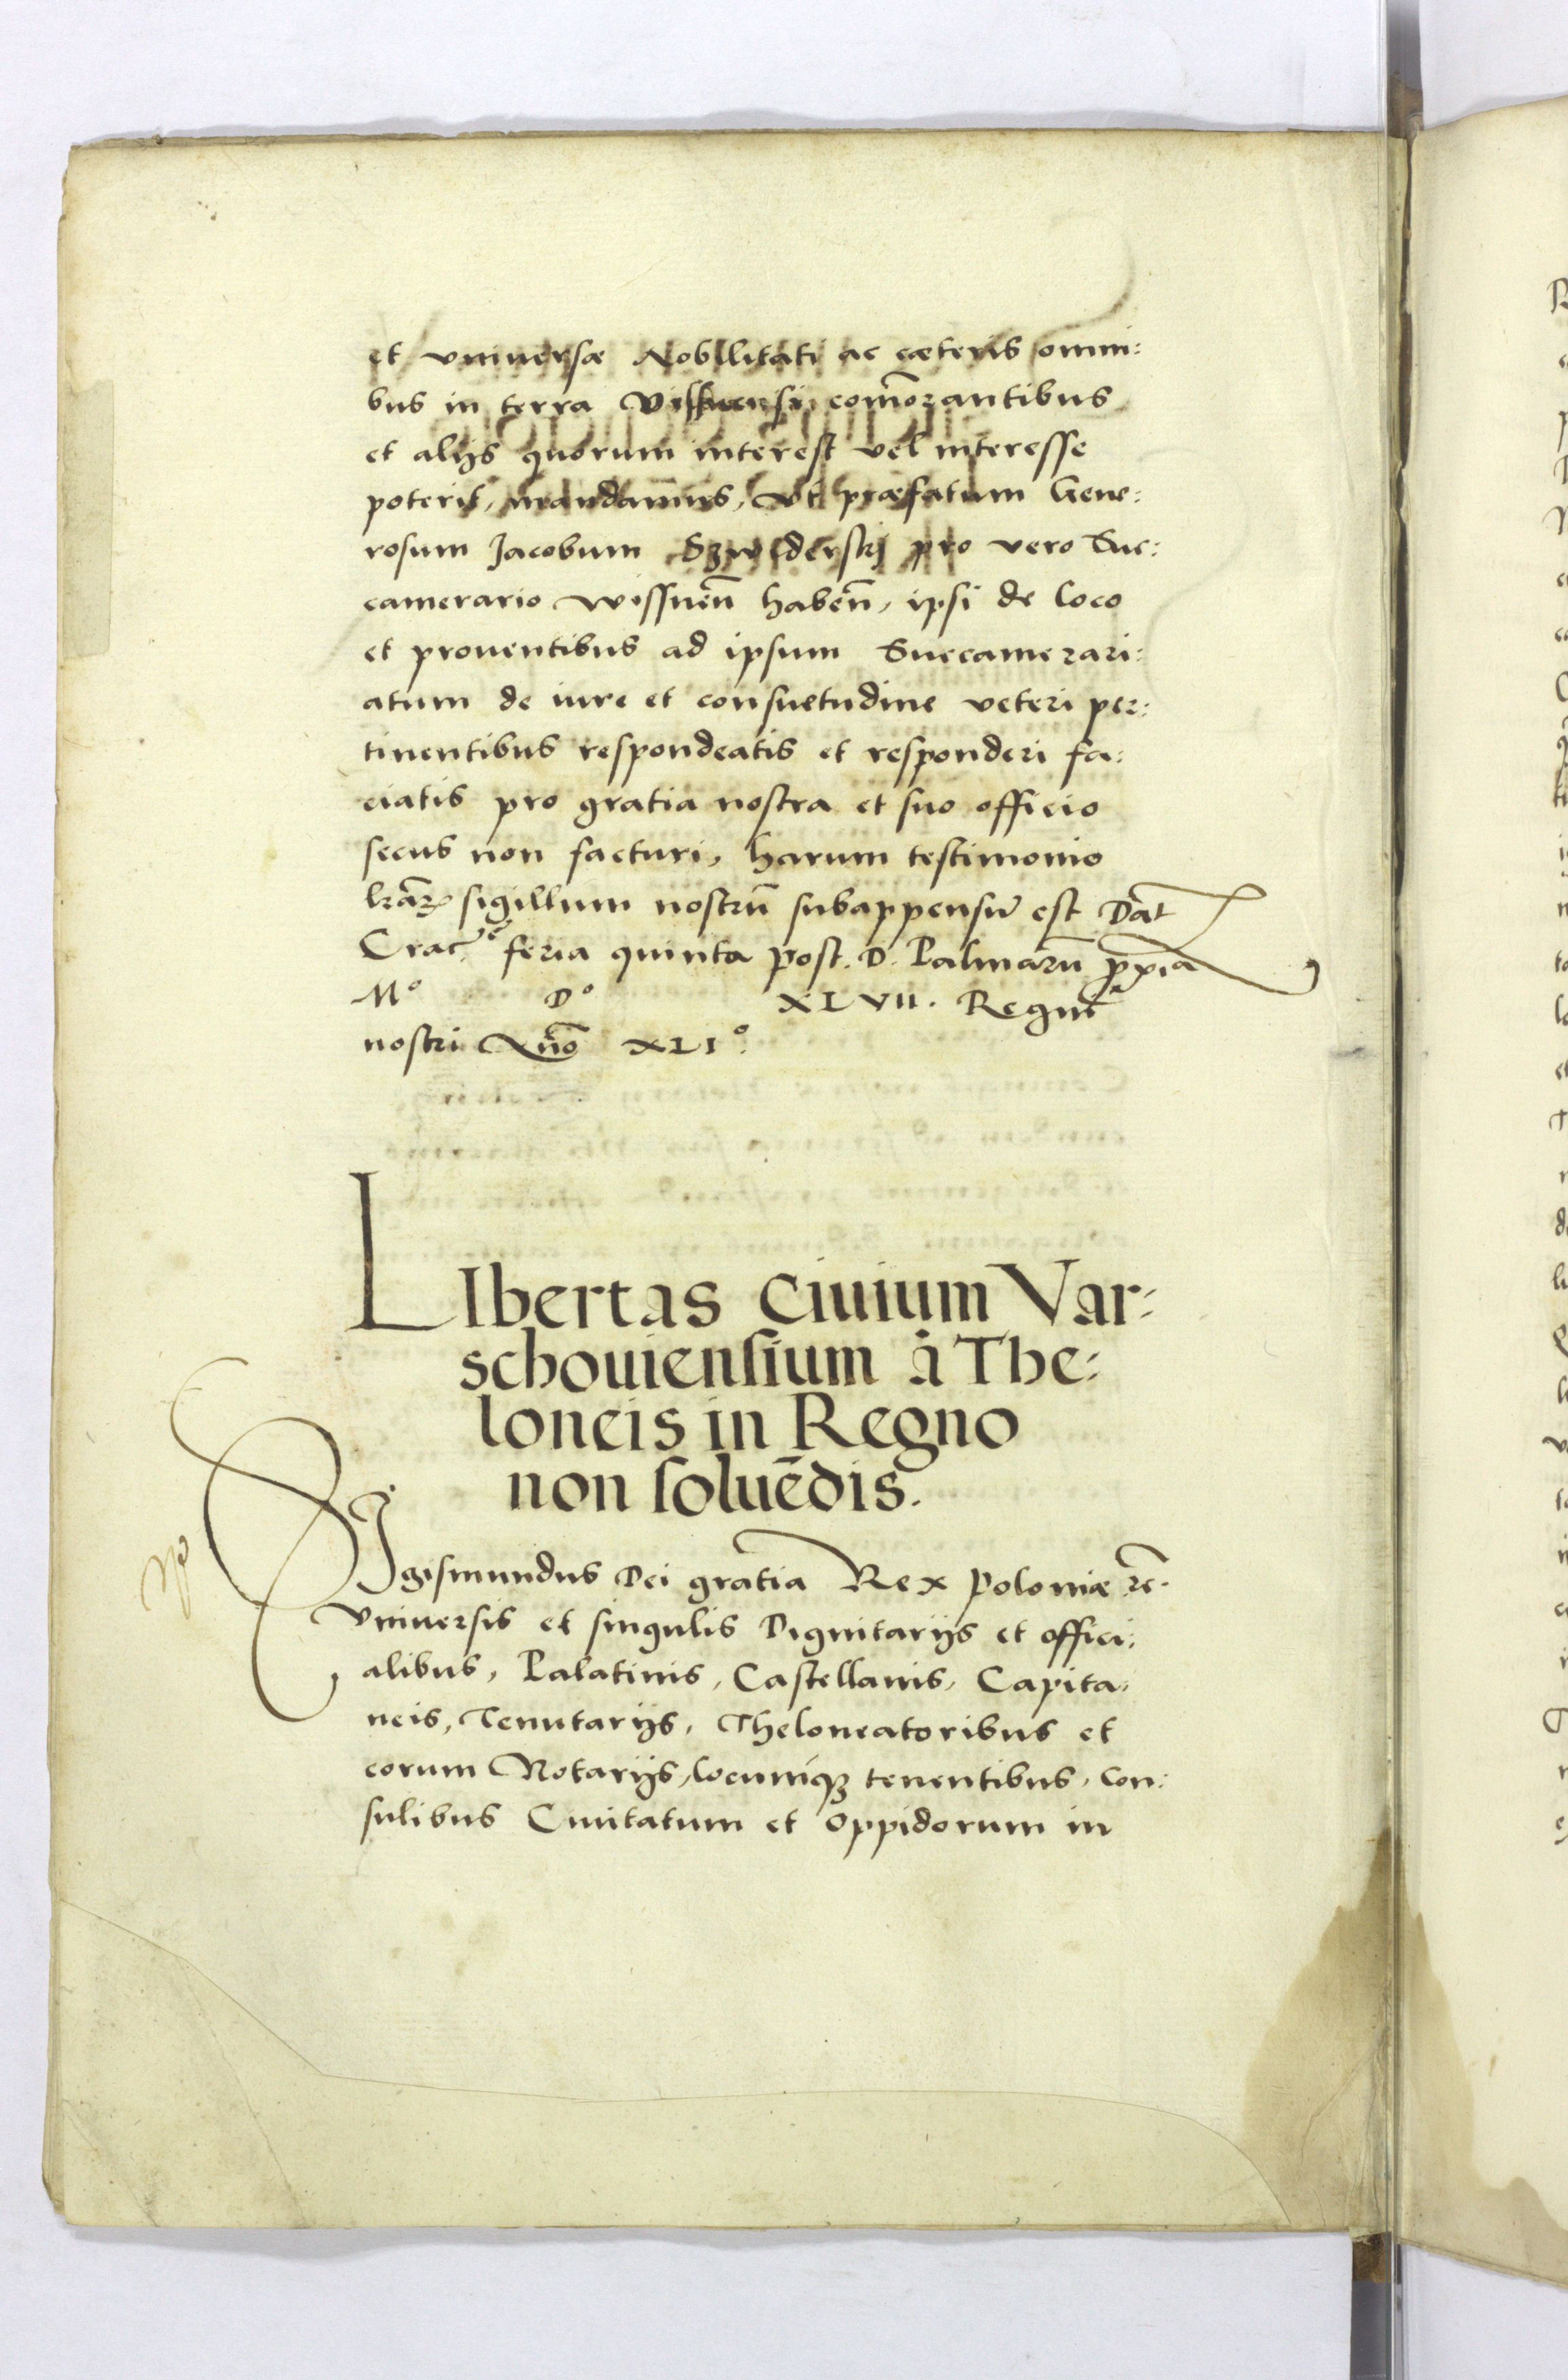 et vniuersæ Nobilitati ac cæteris omni:
bus in terra Vissnensi com̄orantibus
et alijs quorum interest vel interesse
poterit, mandamus, vt præfatum Gene:
rosum Jacobum Szwiderskj pro vero Suc:
camerario wissneñ habeñ, ipsi de loco
et prouentibus ad ipsum Succamerari:
atum de iure et consuetudine veteri per:
tinentibus respondeatis et responderi fa:
ciatis pro gratia nostra et suo officio
secus non facturi, harum testimonio
lrãrꝫ sigillum nostrũ subappensũ est Dat̃
Crac̃. feria quinta post. D. Palmarũ ꝓxĩa
Mº Dº XLVII. Regni
nostri Añno XLIº.
LIbertas Ciuium Var:
schouiensium à The:
loneis in Regno
non soluẽdis.
SIgismundus Dei gratia Rex Poloniæ ꝛc̃.
Vniuersis et singulis Dignitarijs et offici:
alibus, Palatinis, Castellanis, Capita:
neis, Tenutarijs, Theloneatoribus et
eorum Notarijs, locumqꝫ tenentibus, Con:
sulibus Ciuitatum et Oppidorum in